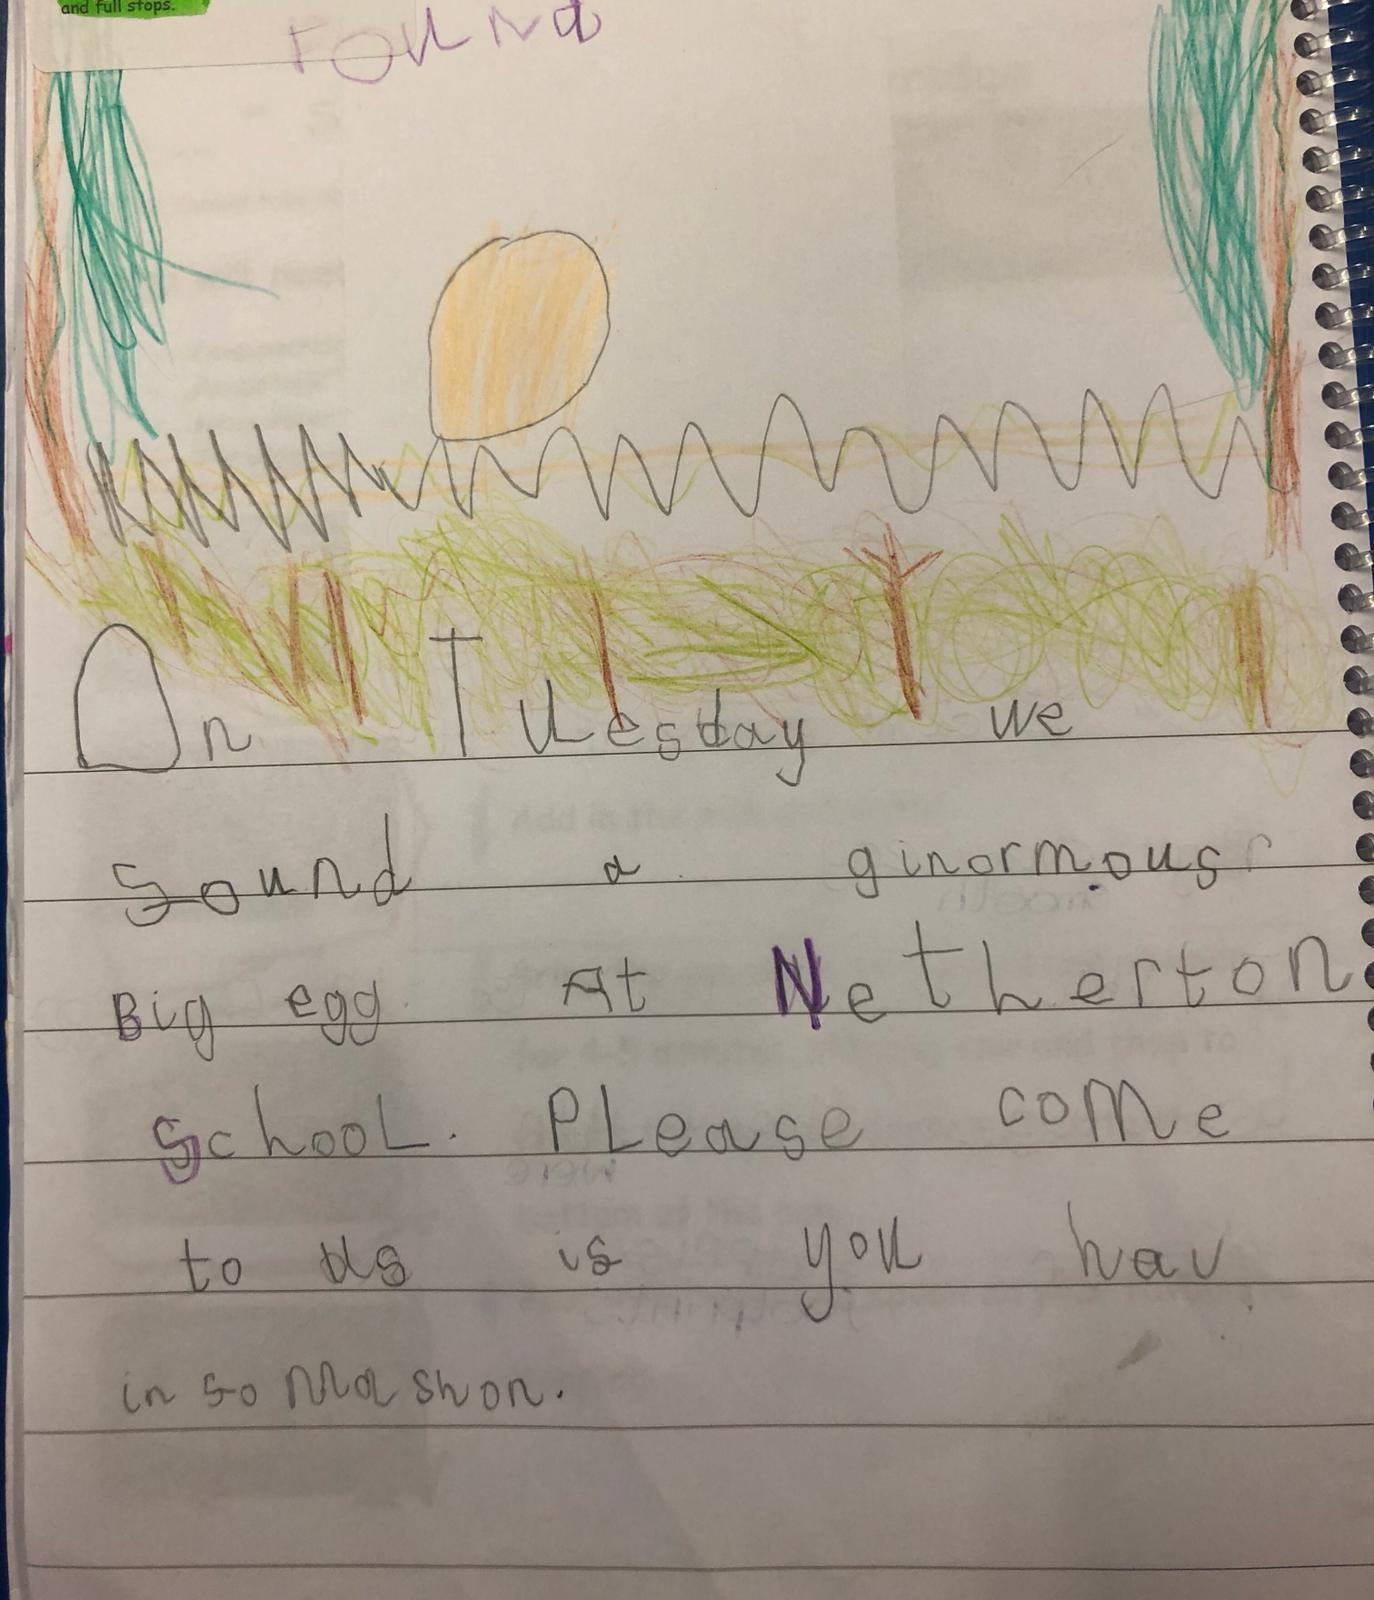 and full stops.
Found
On Tuesday we
sound a ginormous
Big egg At Netherton
School. PLease come
to us is you hav
in so mashon.